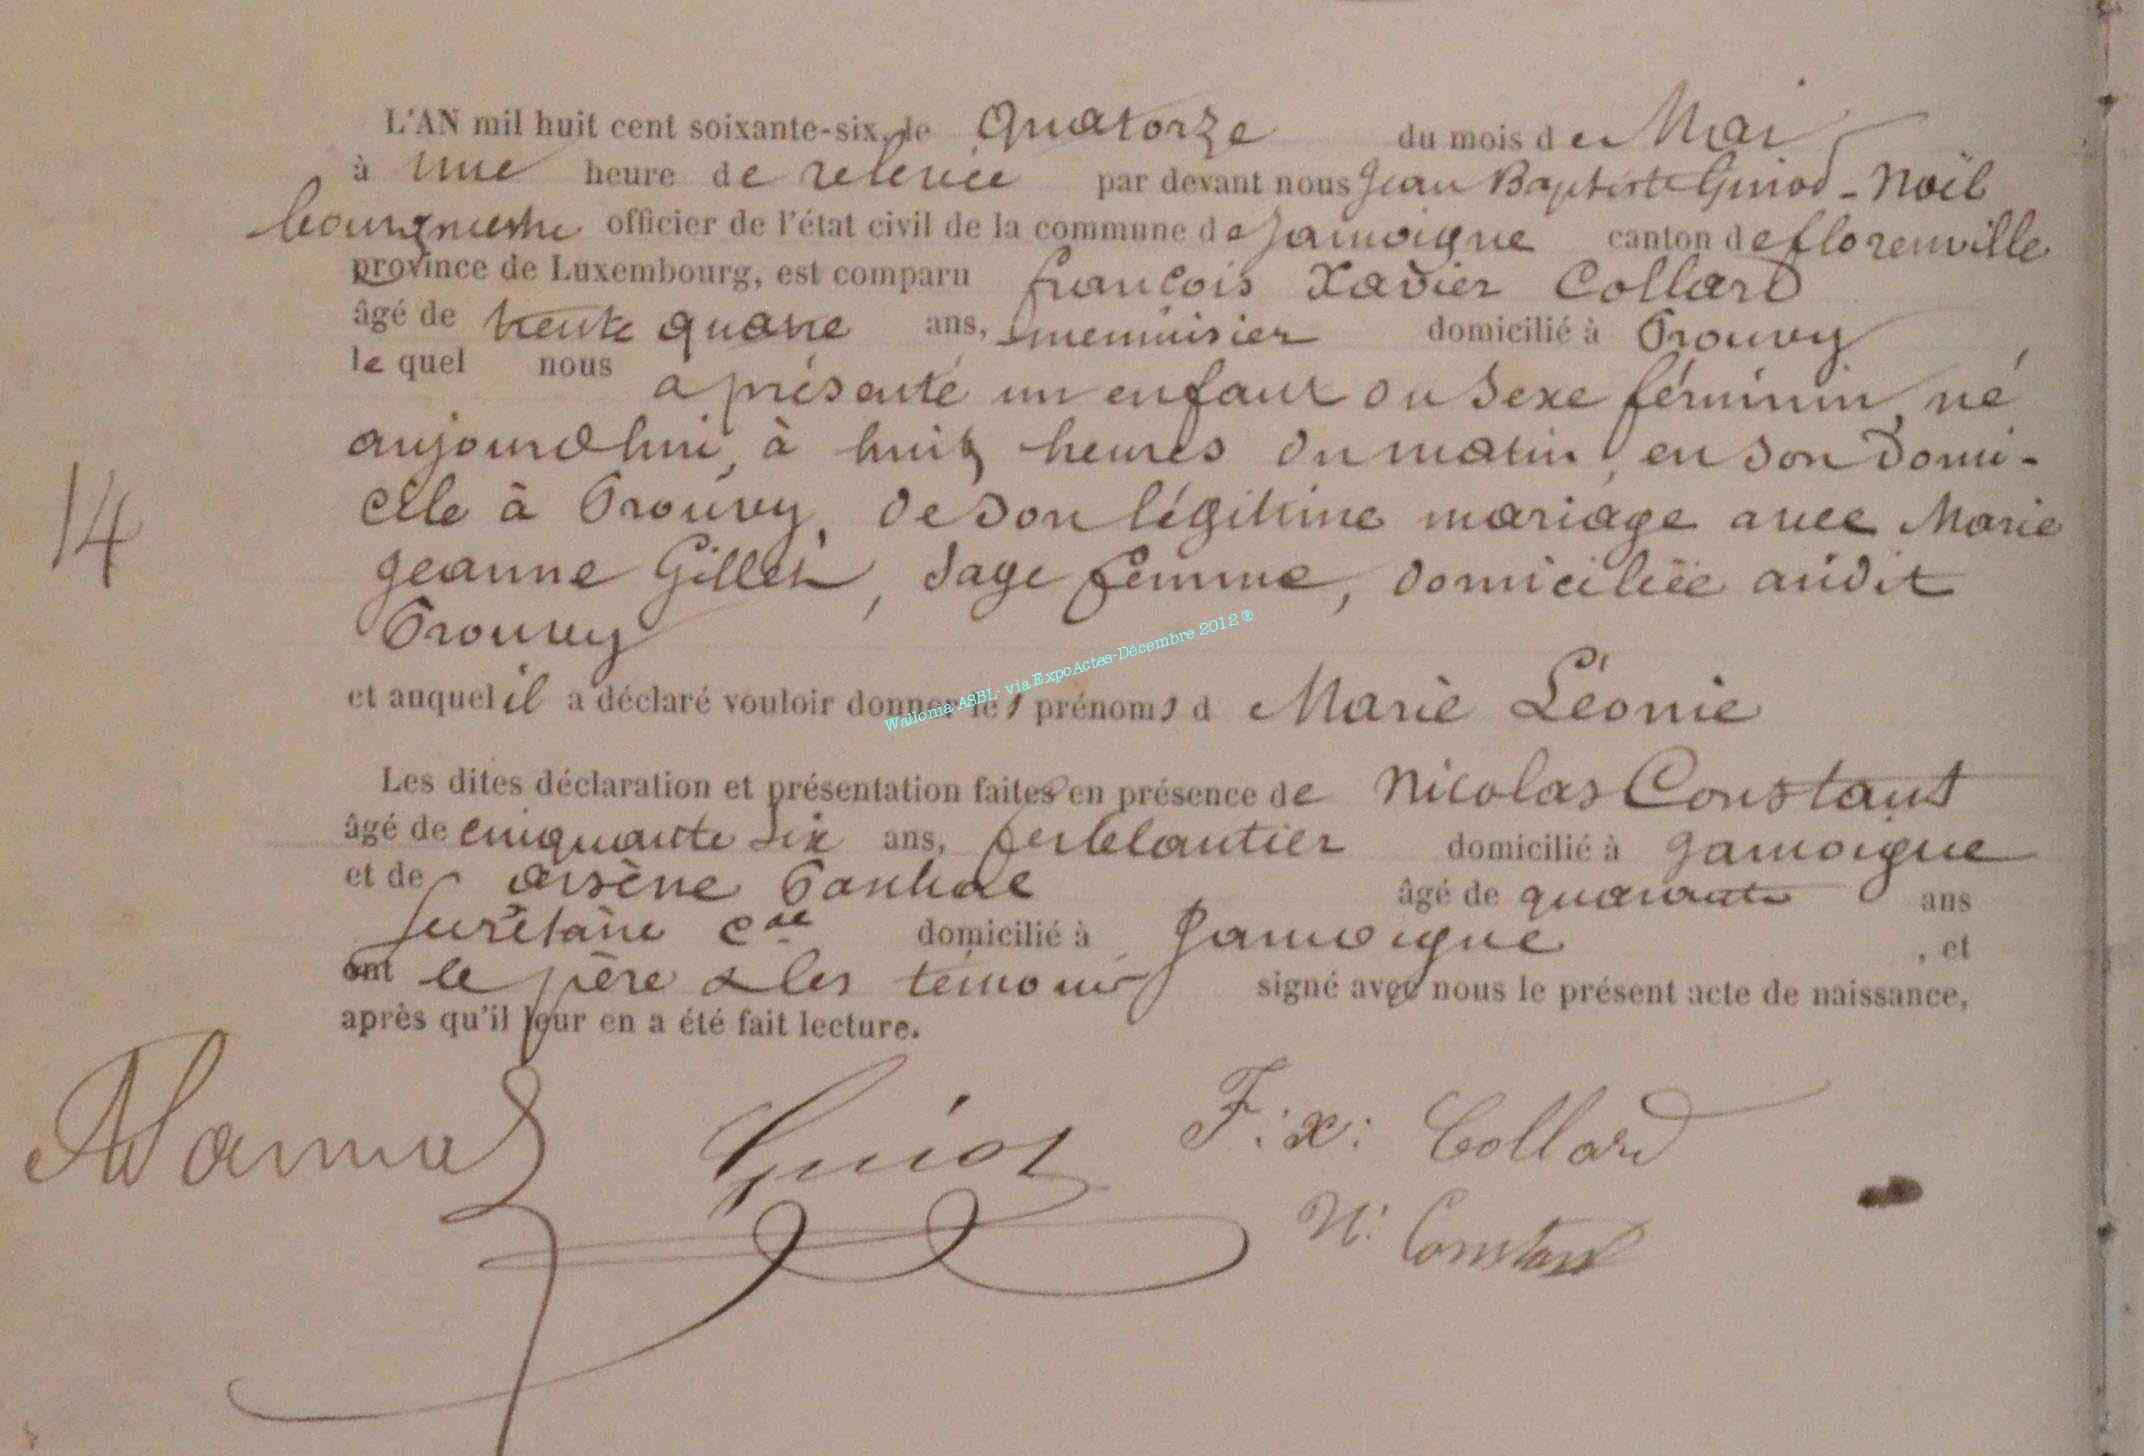 L'AN mil huit cent soixante-six, le quatorze du mois de Mai
à une heure de relevée par devant nous Jean Baptiste Guiod - Noël
bourgmestre officier de l'état civil de la commune de Jamoigne canton de florenville
province de Luxembourg, est comparu françois Xavier Collard
âgé de trente quatre ans, menuisier domicilié à Prouvy
le quel nous a présenté un enfant du sexe féminin, né
aujourdhui, à huit heures du matin, en son domi-
cile à Prouvy, de son légitime mariage avec Marie
jeanne Gillet, sage femme, domiciliée audit
Prouvy
et auquel il a déclaré vouloir donner les prénoms d Marie Léonie
Wallonia ASBL- via ExpoActes-Décembre 2012 ®
Les dites déclaration et présentation faites en présence de Nicolas Constant
âgé de cinquante six ans, ferblantier domicilié à Jamoigne
et de arsène âgé de quarante ans
secrétaire cal domicilié à Jamoigne , et
ont le père & les témoins signé avec nous le présent acte de naissance,
après qu'il leur en a été fait lecture.
14
Guiot F: x: Collard
N: Constant